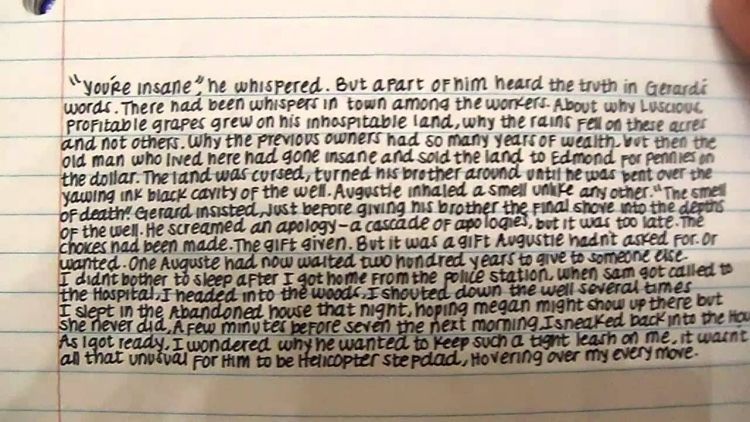 "you're insane", he whispered. But a part of him heard the truth in Gerard's
words. There had been whispers in town among the workers. About why Luscious,
profitable grapes grew on his inhospitable land, why the rains fell on these acres
and not others. Why the previous owners had so many years of wealth, but then the
old man who lived here had gone insane and sold the land to Edmond for pennies on
the dollar. The land was cursed, turned his brother around until he was bent over the
yawing ink black cavity of the well. Augustie inhaled a smell unlike any other. "The smell
of death". Gerard insisted, just before giving his brother the final shove into the depths
of the well. He screamed an apology - a cascade of apologies, but it was too late. The
choices had been made. The gift given. But it was a gift Augustie hadn't asked for. Or
wanted. One Auguste had now waited two hundred years to give to someone else.
I didnt bother to sleep after I got home from the police station, when sam got called to
the Hospital, I headed into the woods. I shouted down the well several times
I slept in the Abandoned house that night, hoping megan might show up there but
she never did. A few minutes before seven the next morning, I sneaked back into the
As I got ready, I wondered why he wanted to keep such a tight leash on me, it wasn't
all that unusual for Him to be Helicopter stepdad, Hovering over my every move.